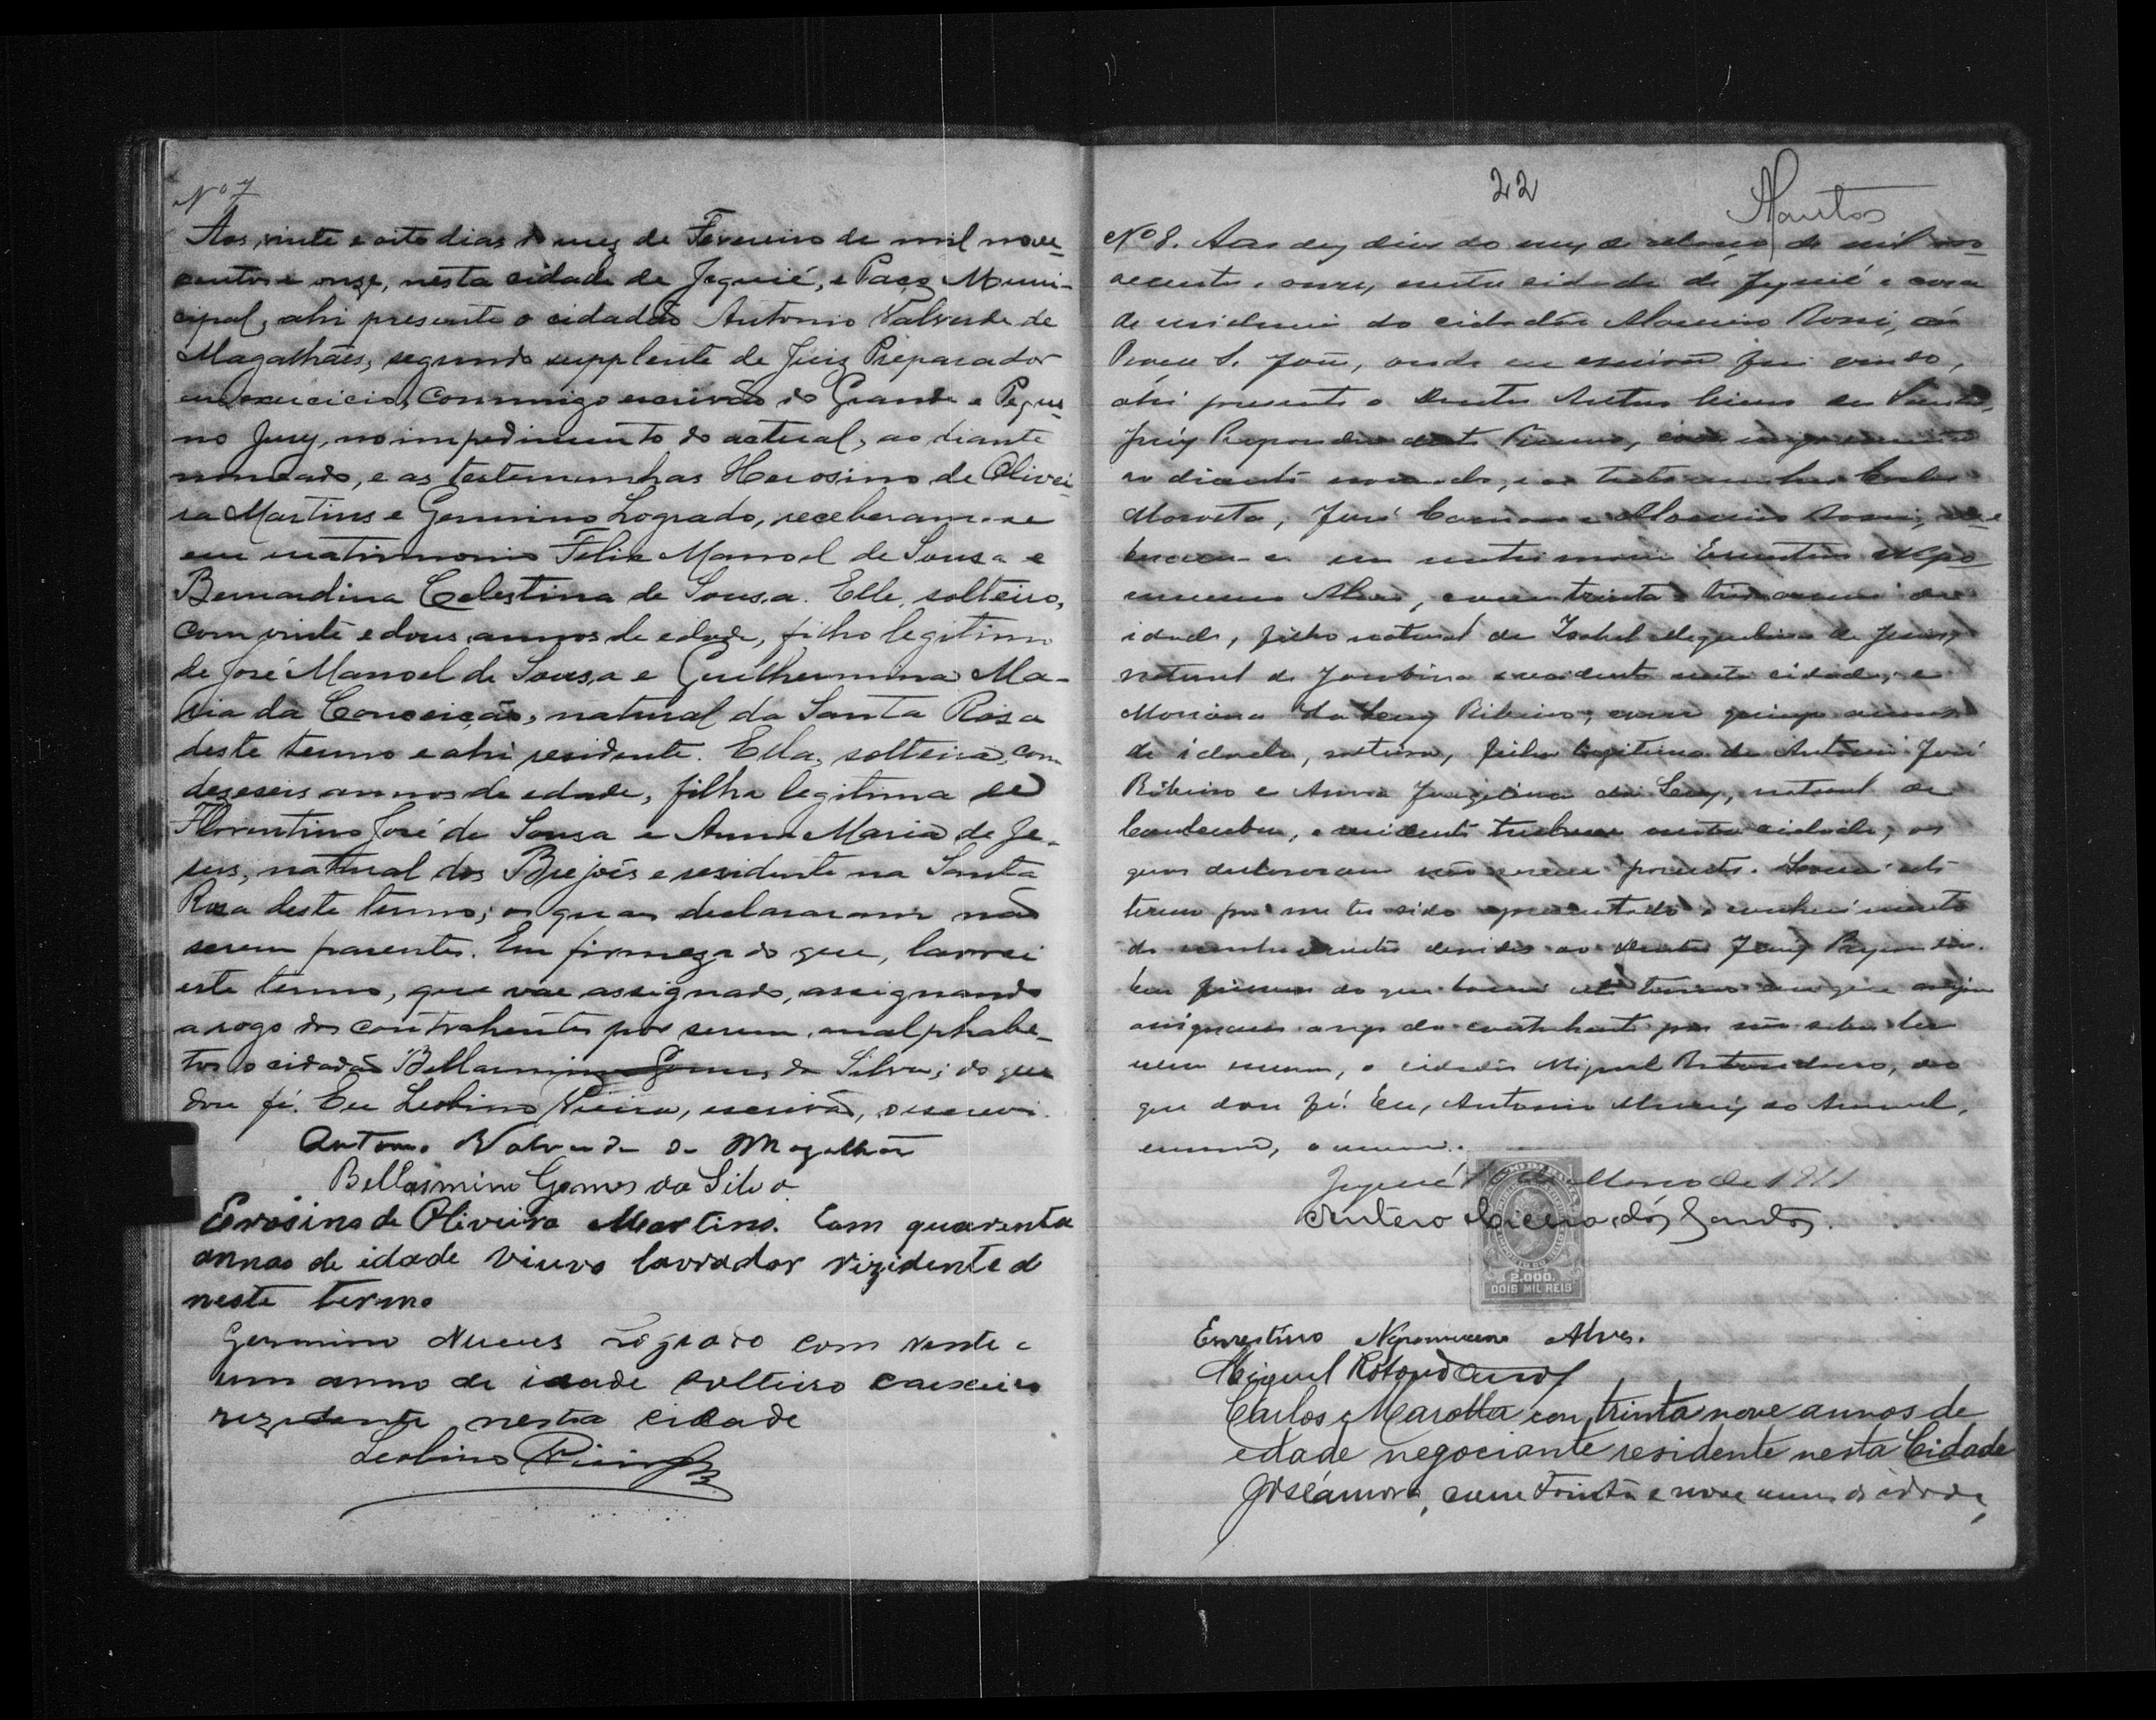 Nº 7
Aos vinte e oito dias do mez de Fevereiro de mil nove-
centos e onze, nesta cidade de Jequié, e Paço Muni-
cipal, ahi presente o cidadão Antonio Valverde de
Magalhães, segundo supplente de Juiz Preparador
em exercicio, commigo escrivão do Grande e Peque-
no Jury, no impedimento do actual, ao diante
nomeado, e as testemunhas Herosino de Olivei-
ra Martins e Germino Logrado, receberam-se
em matrimonio Felix Manoel de Sousa e
Bernardina Celestina de Sousa. Elle, solteiro,
com vinte e dous annos de edade, filho legitimo
de José Manoel de Sousa e Guilhermina Ma-
ria da Conceição, natural da Santa Rosa
deste termo e ahi residente. Ella, solteira, com
deseseis annos de edade, filha legitima de
Florentino José de Sousa e Anna Maria de Je-
sus, natural dos Brejões e residente na Santa
Rosa deste termo; os quaes declararam não
serem parentes. Em firmeza do que, lavrei
este termo, que vae assignado, assignando
a rogo dos contrahentes por serem analphabe-
tos o cidadão Bellarmino Gomes da Silva; do que
dou fé. Eu Leolino Vieira, escrivão, o escrevi.
Antonio Valverde de Magalhães
Bellarmino Gomes da Silva
Erosino de Oliveira Martins. Com quarenta
annos de idade viuvo lavrador rizidente
neste termo
Germino Nunes Logrado com vente e
um anno de idade solteiro caixeiro
rezidente nesta cidade
Leolino Vieira
22
Santos
Nº 8. Aos dez dias do mez de Março de mil no-
vecentos e onze, nesta cidade de Jequié e casa
de residencia do cidadão Rossi,
S. João, onde eu escrivão fui vindo,
ahi presente o Doutor Antero Cicero dos Santos,
Juiz Preparador deste Termo,
ao diante nomeado, e as testemunhas Carlos
Marotta, José e Rossi, rece-
beram-se em matrimonio Ernestino Nepo-
muceno Alves, com trinta e tres annos de
idade, filho natural de Izabel de Jesus,
natural de Jacobina e residente nesta cidade, e
Mariana da Ribeiro, com quinze annos
de idade, solteira, filha legitima de Antonio José
Ribeiro e Anna da natural de
e residente tambem nesta cidade; os
quaes declararam não serem parentes. Lavrei este
termo por me ter sido apresentado o conhecimento
do devidos ao Doutor Juiz Preparador.
Em firmeza do que lavrei este termo em que
assignam a rogo da contrahente por não saber ler
nem escrever, o cidadão Miguel Rotondano, do
que dou fé. Eu, Antonio do Amaral,
escrivão, o escrevi.
Jequié 10 de Março de 1911
Antero Cicero dos Santos.
2.000.
DOIS MIL REIS
Ernestino Nepomuceno Alves.
Miguel Rotondano
Carlos Marotta com trinta nove annos de
edade negociante residente nesta Cidade
José com trinta e nove annos de idade,